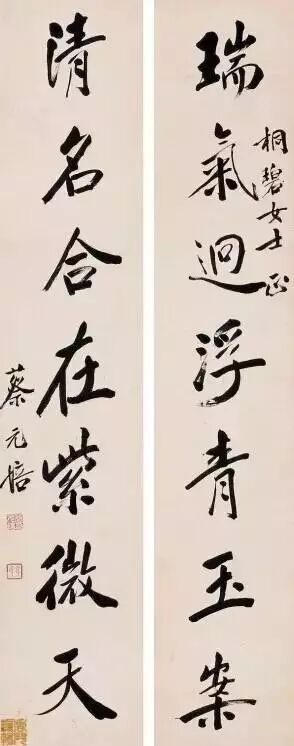 瑞氣迥浮青玉案
桐碧女士正
清名合在紫微天
蔡元培